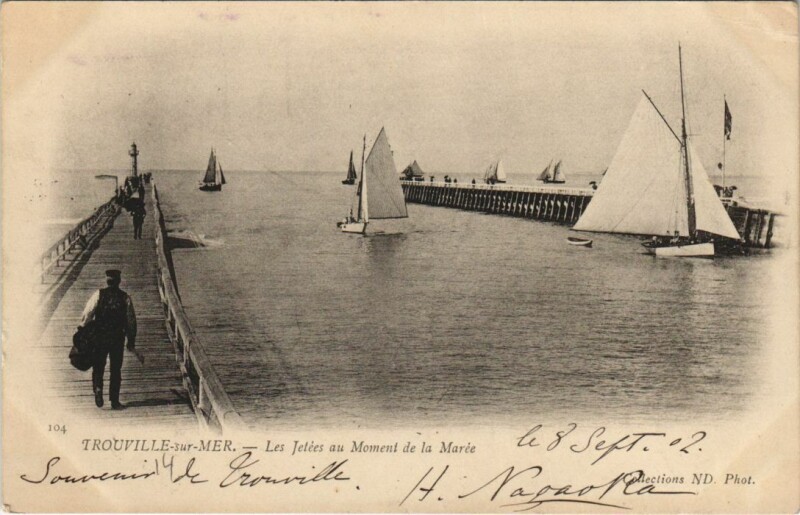 104
TROUVILLE-sur-MER. — Les Jetées au Moment de la Marée
le 8 Sept. 02.
Collections ND. Phot.
Souvenir de Trouville.
14
H. Nagaoka